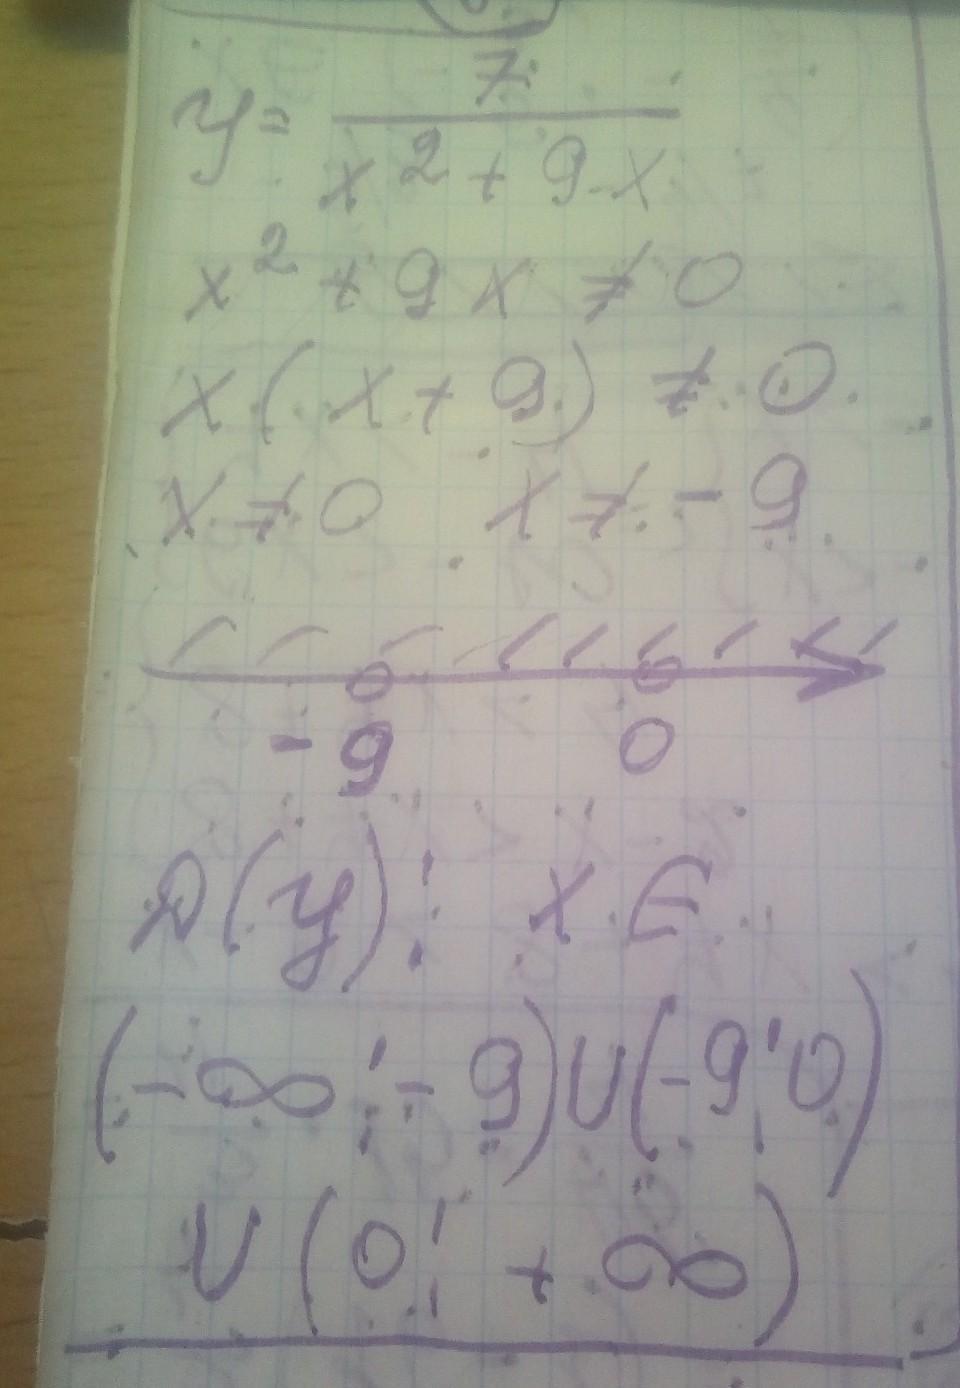 y = 7 / (x² + 9x)
x² + 9x ≠ 0
x(x + 9) ≠ 0
x ≠ 0 x ≠ -9
-9 0
D(y): x ∈
(-∞; -9) ∪ (-9; 0)
∪ (0; +∞)